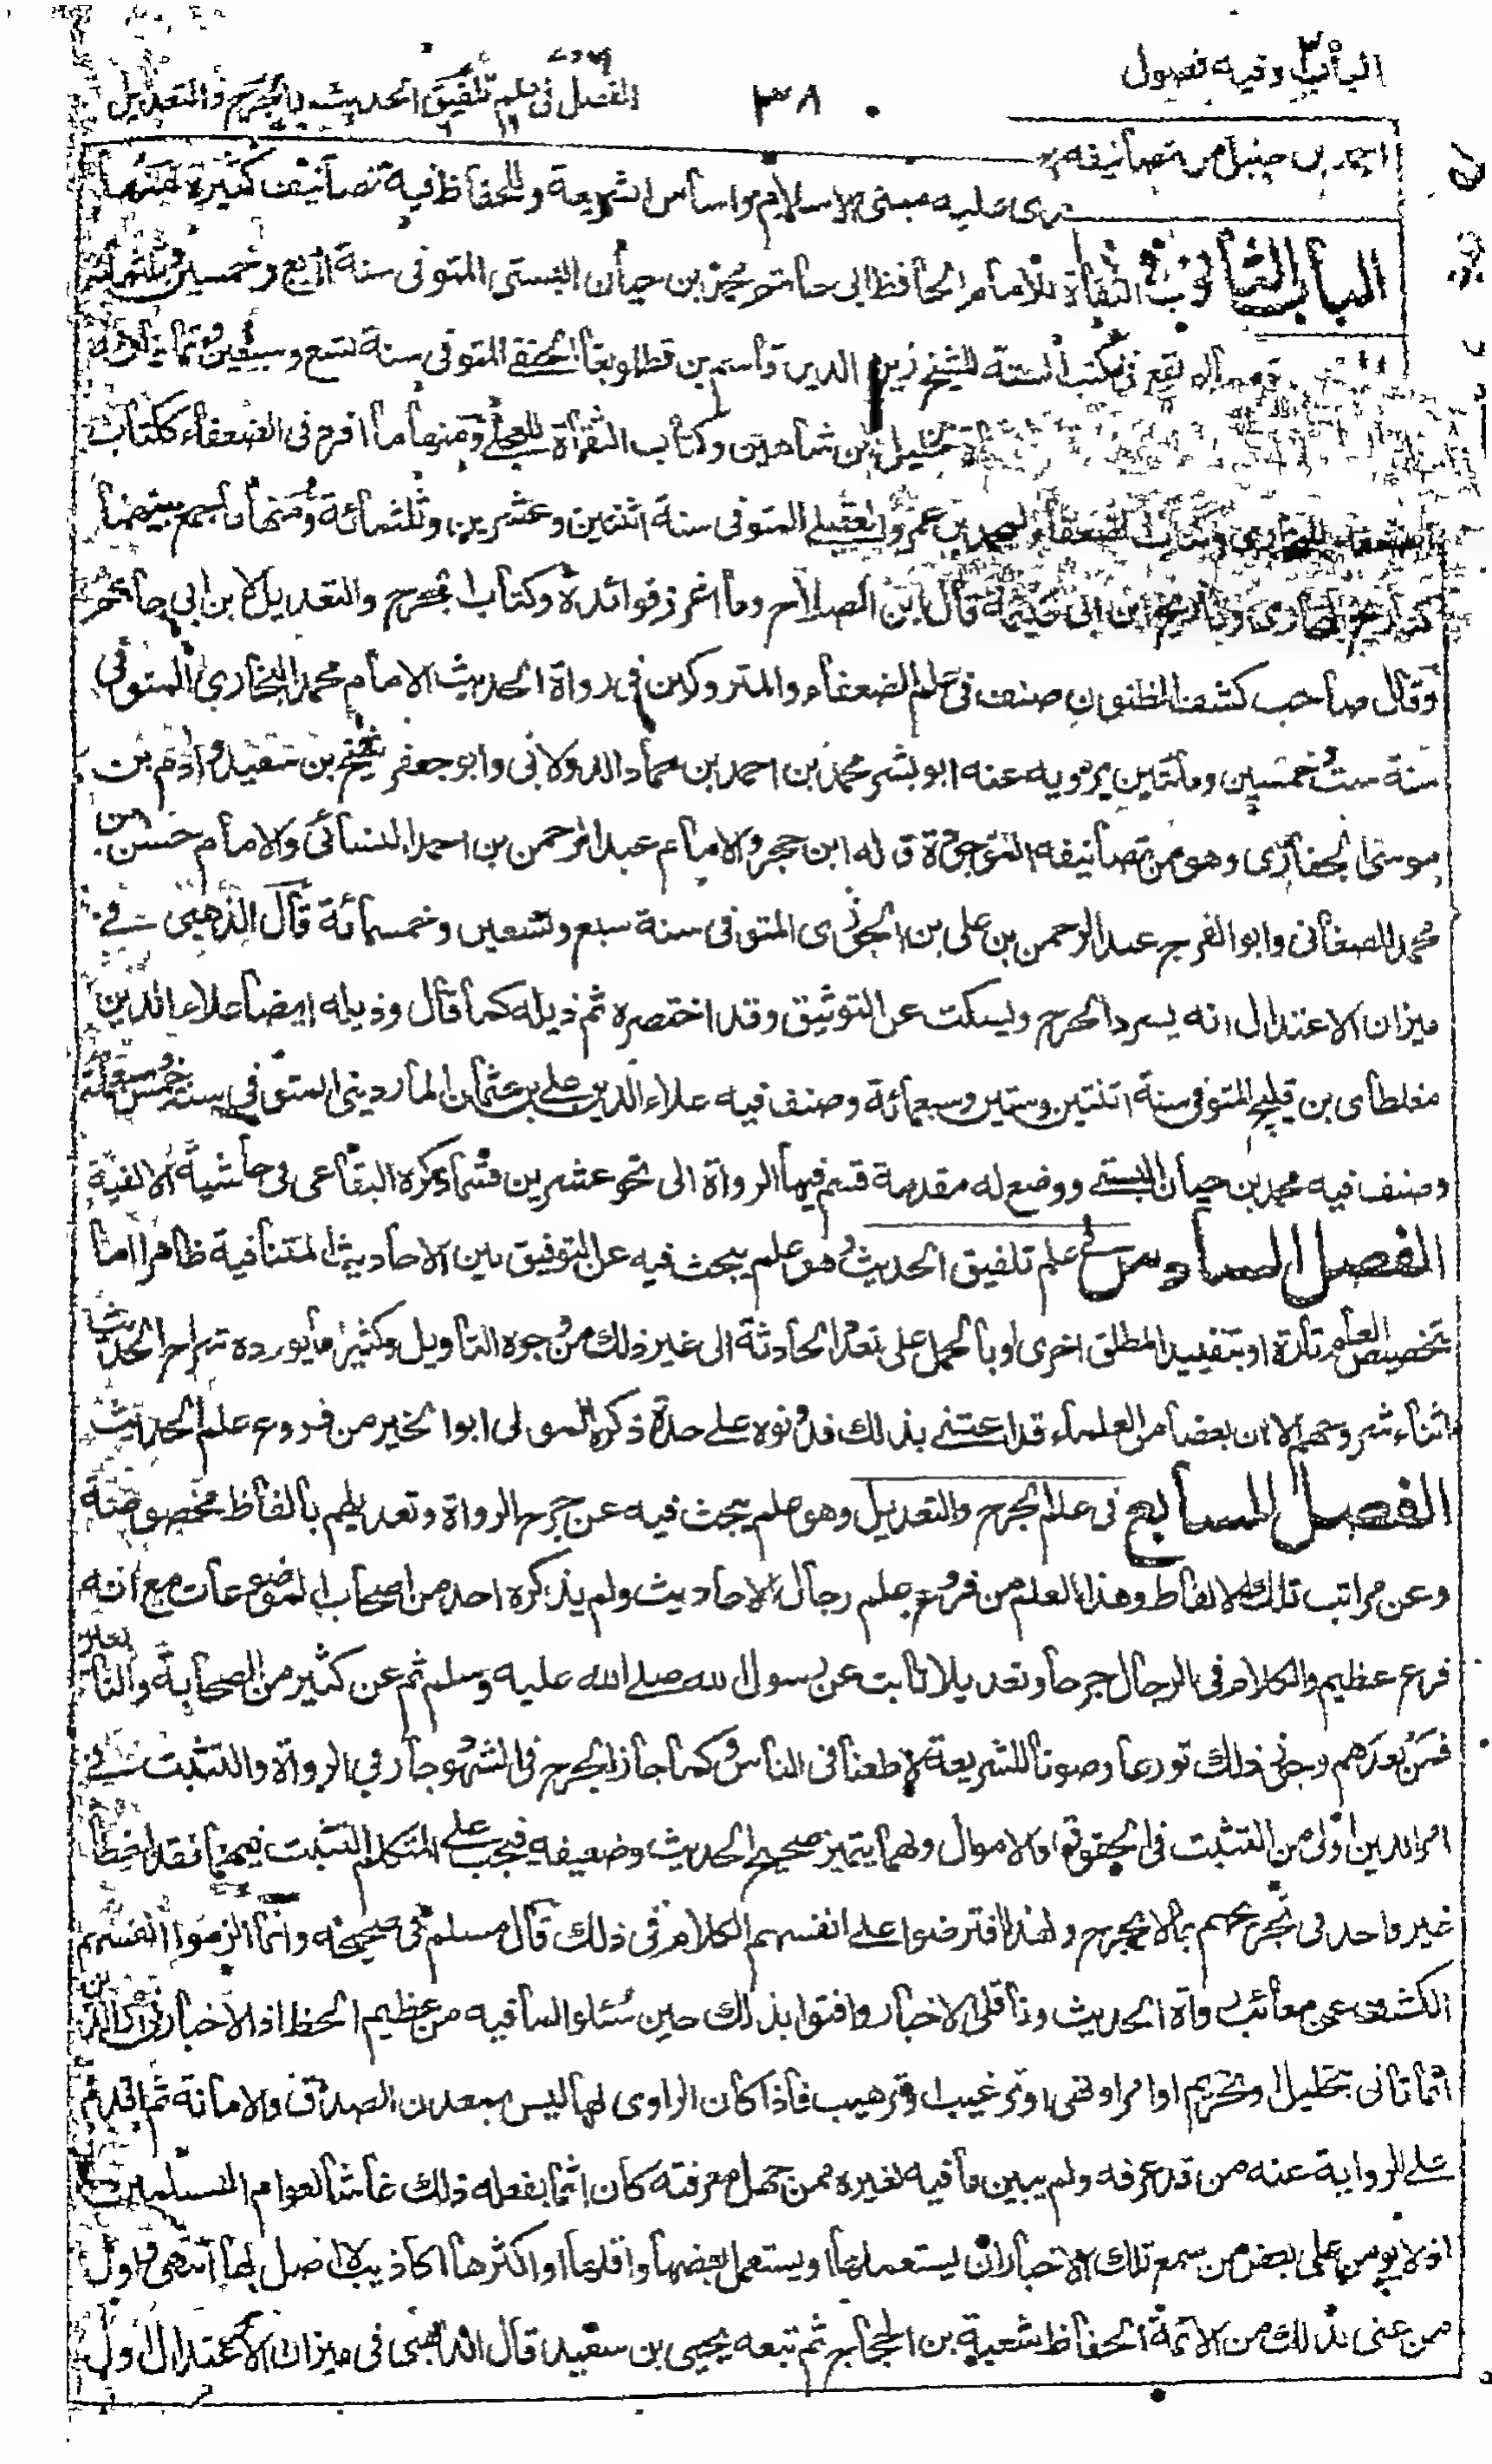 الباب ٣ وفيه فصول
٣٨
الفصل في علم تلفيق الحديث والجرح والتعديل
احمد بن حنبل من تصانيفه
عليه مبنى الاسلام واساس الشريعة وللحفاظ فيه تصانيف كثيرة منها
الباب الثالث الثقاة للامام الحافظ ابى حاتم محمد بن حبان البستى المتوفى سنة اربع وخمسين وثلثمائة
يقع فى الكتب الستة للشيخ زين الدين قاسم بن قطلوبغا الحنفى المتوفى سنة تسع وسبعين وثمانمائة
خليل بن شاهين وكتاب الثقاة للعجلى ومنها ما افرد فى الضعفاء ككتاب
الضعفاء للبخارى وكتاب الضعفاء لمحمد بن عمرو العقيلى المتوفى سنة اثنتين وعشرين وثلثمائة ومنها ما جمع بينهما
كتاريخ البخارى وتاريخ ابن ابى خيثمة قال ابن الصلاح وما اغزر فوائده وكتاب الجرح والتعديل لابن ابى حاتم
وقال صاحب كشف الظنون صنف فى علم الضعفاء والمتروكين فى رواة الحديث الامام محمد البخارى المتوفى
سنة ست خمسين ومائتين يرويه عنه ابو بشر محمد بن احمد بن حماد الدولابى وابو جعفر شيخ بن سعيد وادم بن
موسى الجفارى وهو من تصانيفه الموجودة قاله ابن حجر والامام عبد الرحمن بن احمد النسائى والامام حسن بن
محمد الصغانى وابو الفرج عبد الرحمن بن على بن الجوزى المتوفى سنة سبع وتسعين وخمسمائة قال الذهبى فى
ميزان الاعتدال انه يسرد الجرح ويسكت عن التوثيق وقد اختصره ثم ذيله كما قال وذيله ايضا علاء الدين
مغلطاى بن قليج المتوفى سنة اثنتين وستين وسبعمائة وصنف فيه علاء الدين على بن عثمان الماردينى المتوفى سنة خمسين وسبعمائة
وصنف فيه محمد بن حبان البستى ووضع له مقدمة قسم فيها الرواة الى نحو عشرين قسما ذكره البقاعى فى حاشية الالفية
الفصل السادس فى علم تلفيق الحديث هو علم يبحث فيه عن التوفيق بين الاحاديث المتنافية ظاهرا اما
بتخصيص العام تارة او بتقييد المطلق اخرى او بالحمل على تعدد الحادثة الى غير ذلك من وجوه التاويل وكثيرا ما يورده شراح الحديث
اثناء شروحهم الا ان بعضا من العلماء قد اعتنى بذلك فدونوه على حدة ذكره المولى ابو الخير من فروع علم الحديث
الفصل السابع فى علم الجرح والتعديل وهو علم يبحث فيه عن جرح الرواة وتعديلهم بالفاظ مخصوصة
وعن مراتب تلك الالفاظ وهذا العلم من فروع علم رجال الاحاديث ولم يذكره احد من اصحاب الموضوعات مع انه
فرع عظيم والكلام فى الرجال جرحا وتعديلا ثابت عن رسول الله صلى الله عليه وسلم ثم عن كثير من الصحابة والتابعين
فمن بعدهم وجوز ذلك تورعا وصونا للشريعة لا طعنا فى الناس وكما جاز الجرح فى الشهود جاز فى الرواة والتثبت فى
امر الدين اولى من التثبت فى الحقوق والاموال وبهما يتميز صحيح الحديث وضعيفه فيجب على المتكلم التثبت فيهما فقد اخطأ
غير واحد فى تجريحهم بما لا يجرح ولهذا افترضوا على انفسهم الكلام فى ذلك قال مسلم فى صحيحه وانما الزموا انفسهم
الكشف عن معائب رواة الحديث وناقلى الاخبار وافتوا بذلك حين سئلوا لما فيه من عظيم الحظ اذ الاخبار فى امر الدين
انما تاتى بتحليل او تحريم او امر او نهى او ترغيب او ترهيب فاذا كان الراوى لها ليس بمعدن الصدق والامانة ثم اقدم
على الرواية عنه من قد عرفه ولم يبين ما فيه لغيره ممن جهل معرفته كان اثما بفعله ذلك غاشا لعوام المسلمين
اذ لا يومن على بعض من سمع تلك الاخبار ان يستعملها او يستعمل بعضها واقلها او اكثرها اكاذيب لا اصل لها انتهى واول
من عنى بذلك من الائمة الحفاظ شعبة بن الحجاج ثم تبعه يحيى بن سعيد قال الذهبى فى ميزان الاعتدال اول